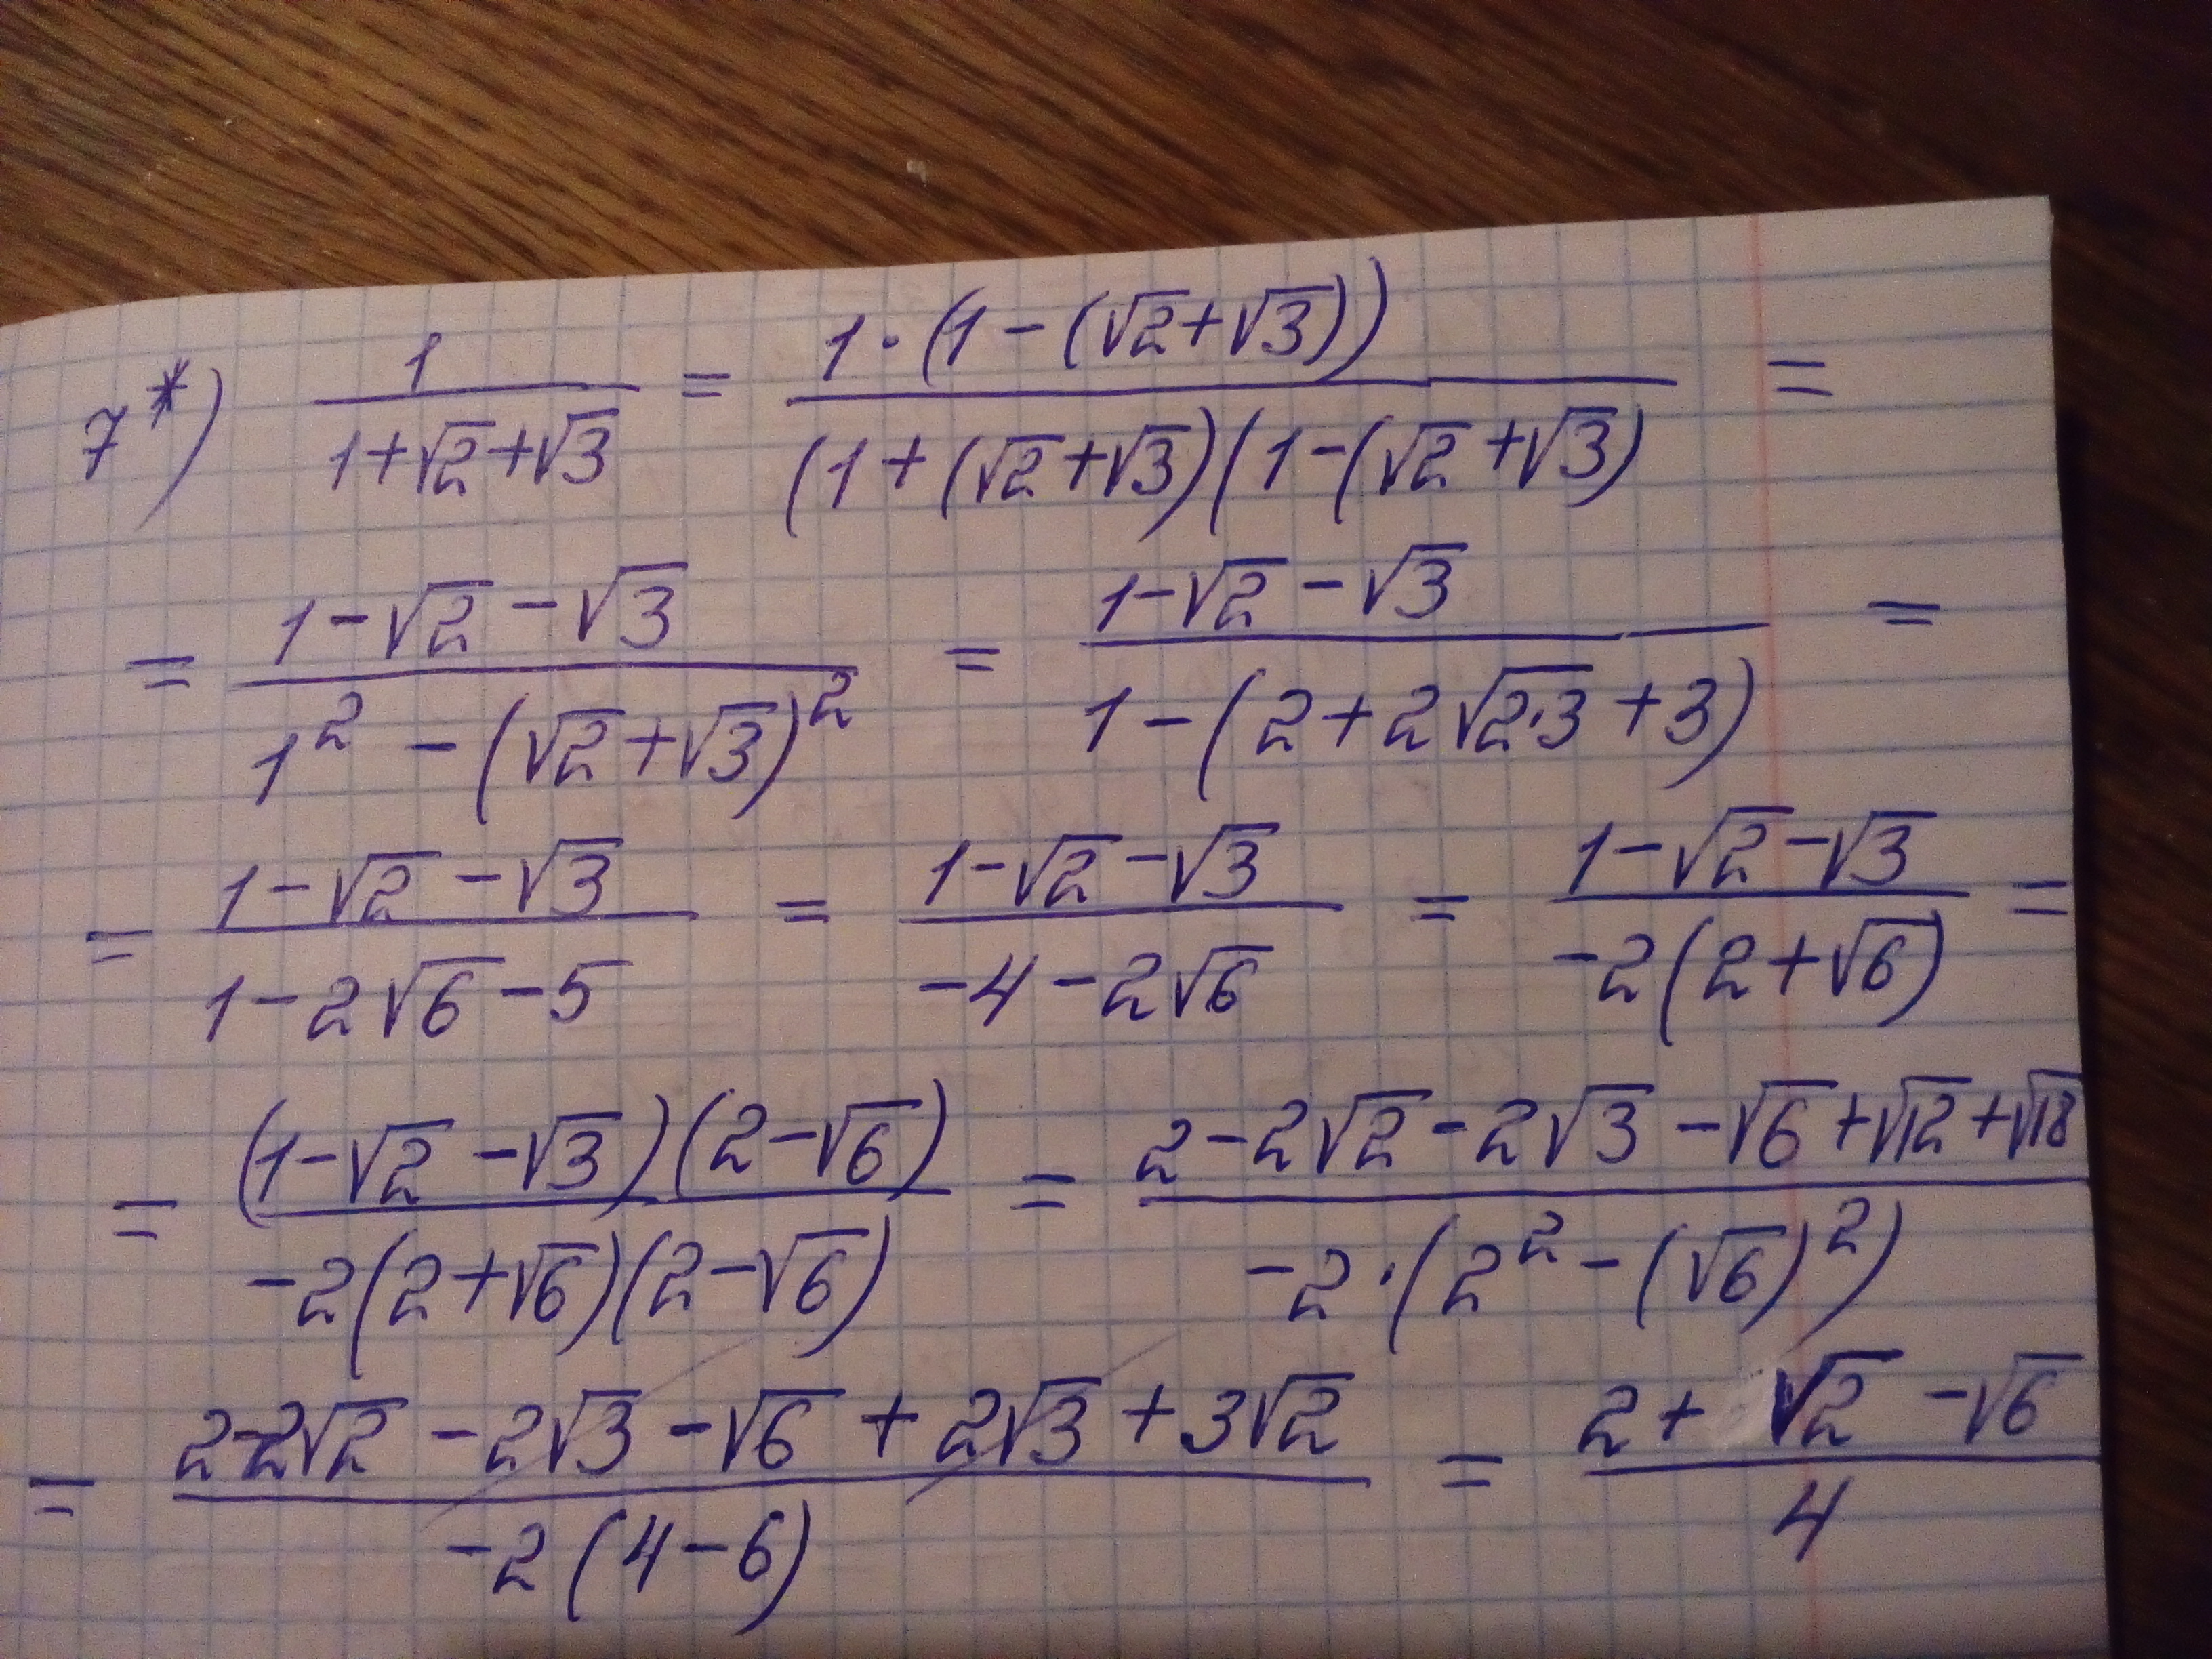 7*) 1/(1+√2+√3) = 1·(1-(√2+√3))/(1+(√2+√3)(1-(√2+√3) =
= (1-√2-√3)/(1²-(√2+√3)²) = (1-√2-√3)/(1-(2+2√(2·3)+3)) =
= (1-√2-√3)/(1-2√6-5) = (1-√2-√3)/(-4-2√6) = (1-√2-√3)/(-2(2+√6)) =
= (1-√2-√3)(2-√6)/(-2(2+√6)(2-√6)) = (2-2√2-2√3-√6+√12+√18)/(-2·(2²-(√6)²))
= (2-2√2-2√3-√6+2√3+3√2)/(-2(4-6)) = (2+√2-√6)/4